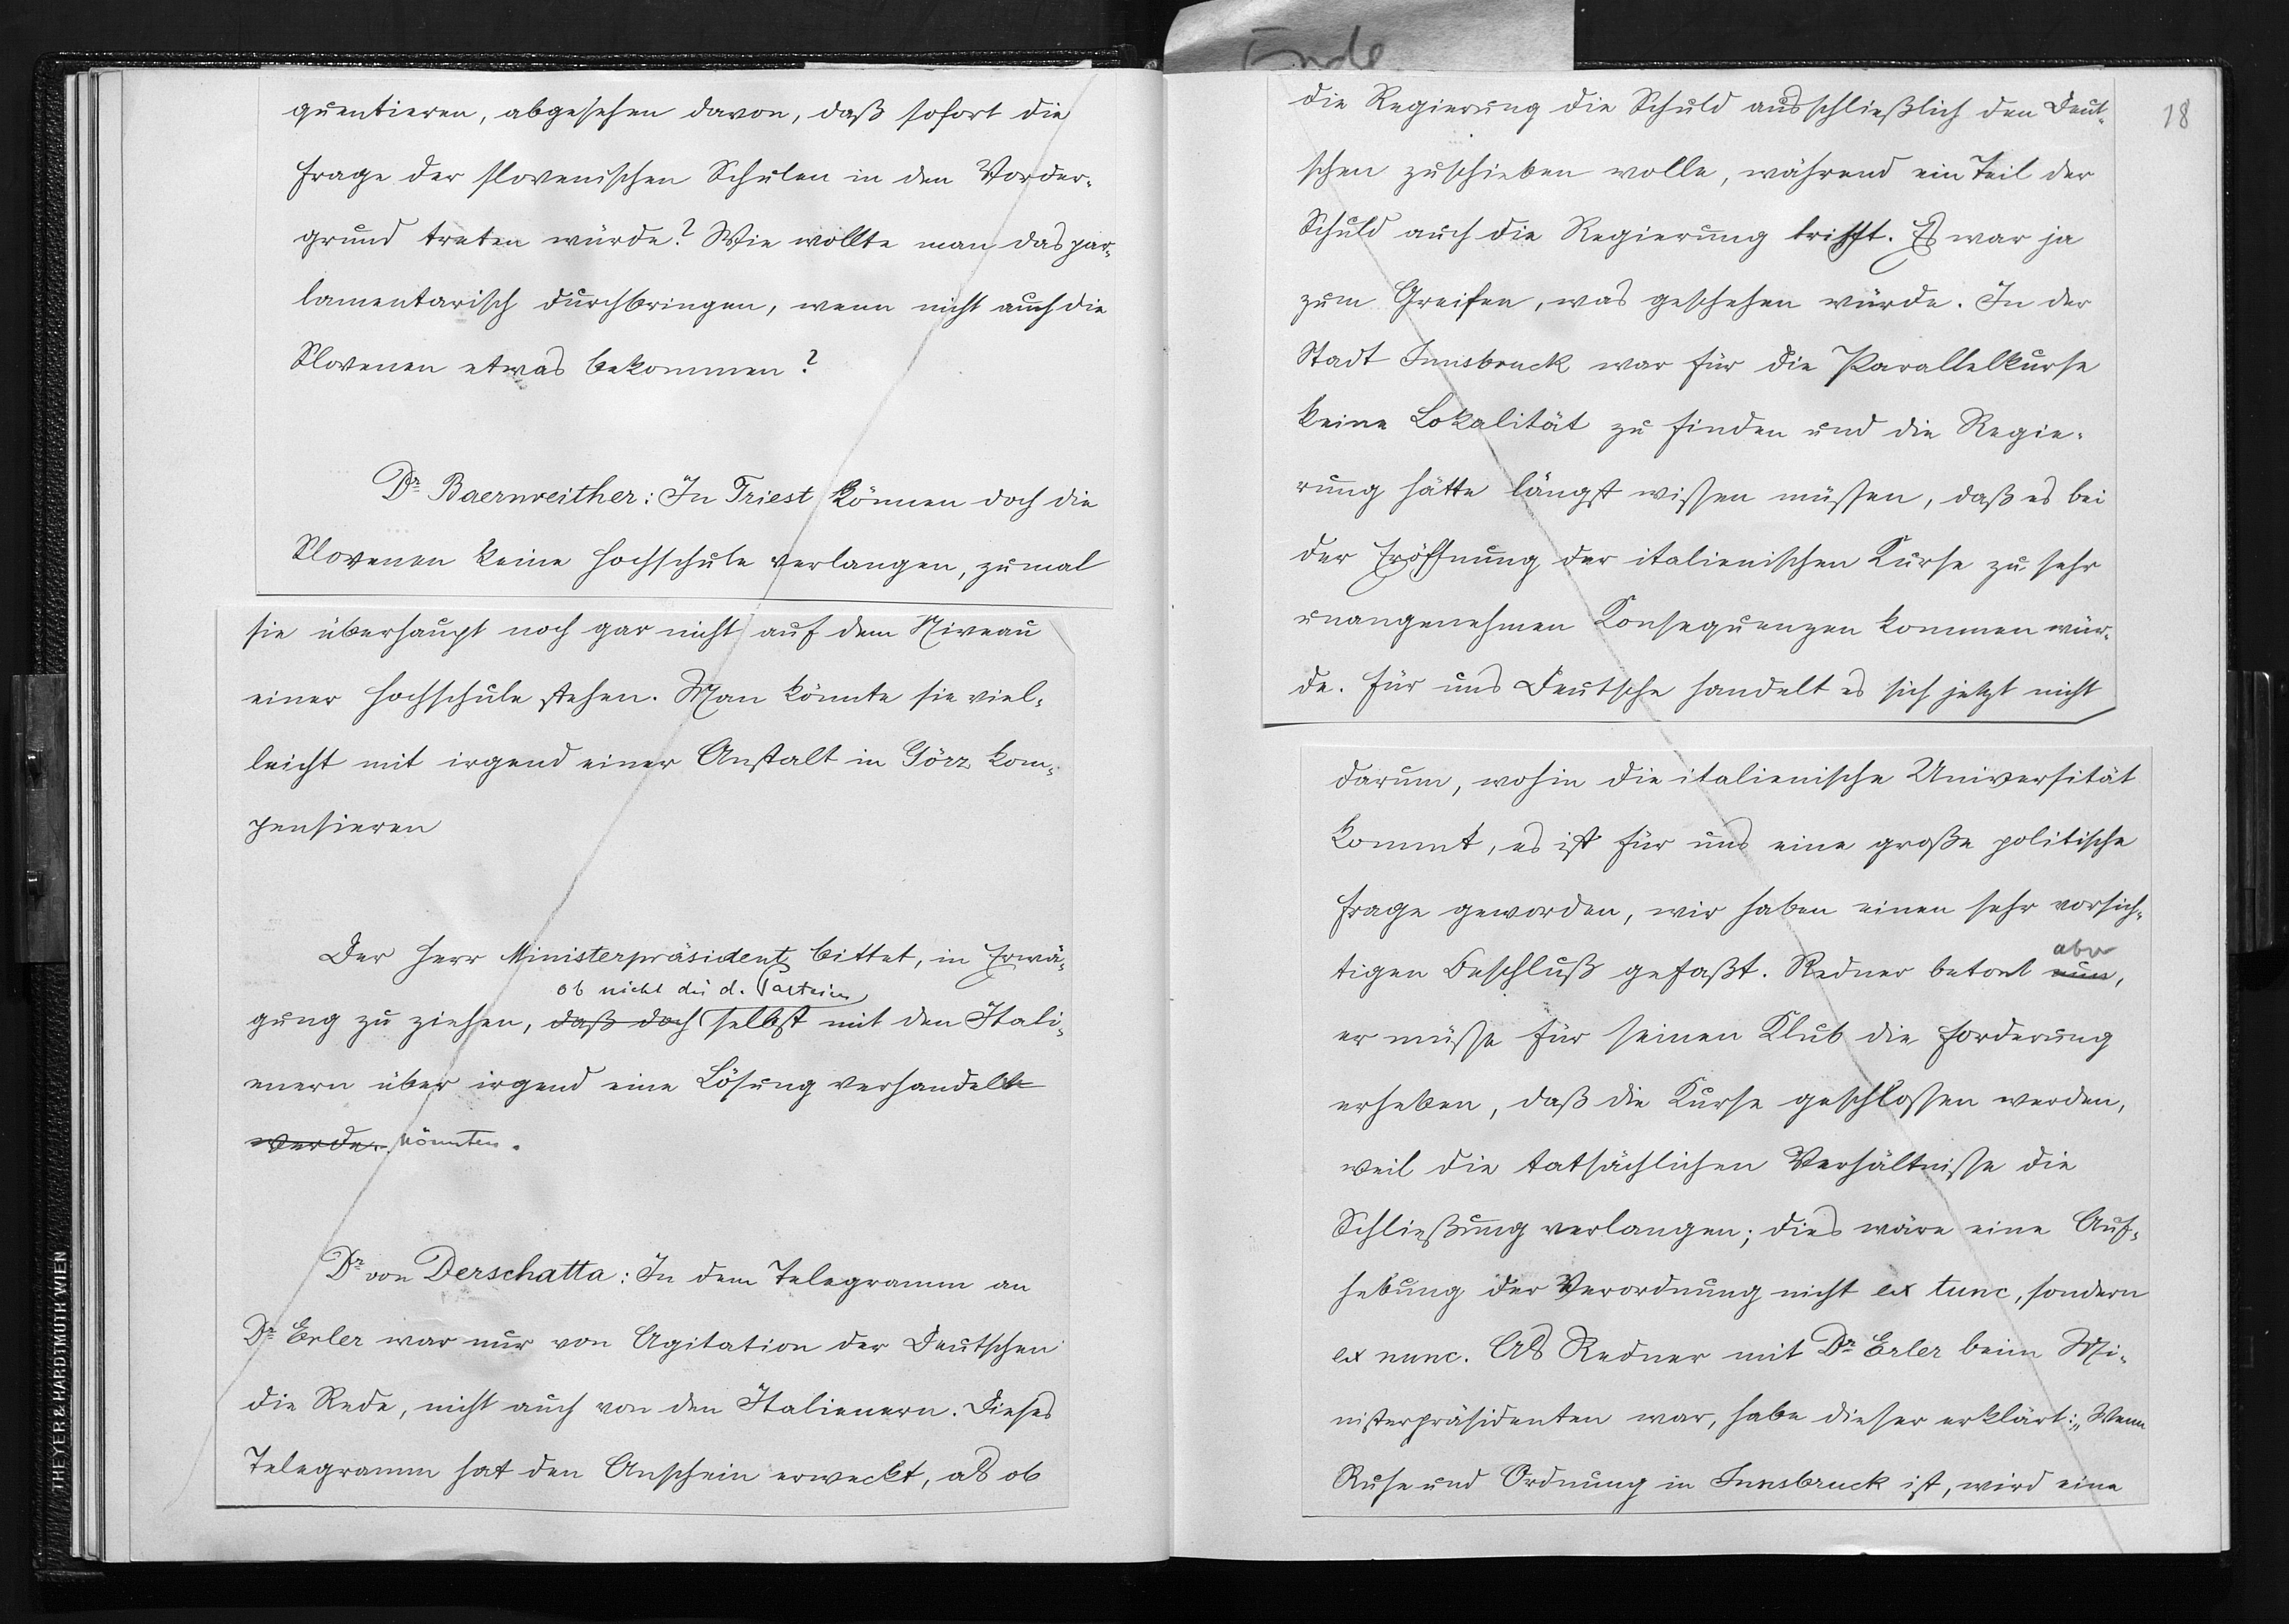 Ende
quentieren, abgesehen davon, daß sofort die
Frage der slovenischen Schulen in den Vorder-
grund treten würde? Wie wollte man das par-
lamentarisch durchbringen, wenn nicht auch die
Slovenen etwas bekommen?
Dr. Baernreither: In Triest können doch die
Slovenen keine Hochschule verlangen, zumal
sie überhaupt noch gar nicht auf dem Niveau
einer Hochschule stehen. Man könnte sie viel-
leicht mit irgend einer Anstalt in Görz kom-
pensieren
Der Herr Ministerpräsident bittet, in Erwä-
ob nicht die d. Parteien
gung zu ziehen, daß doch selbst mit den Itali-
enern über irgend eine Lösung verhandelt
werde. könnten.
Dr. von Derschatta: In dem Telegramm an
Dr. Erler war nur von Agitation der Deutschen
die Rede, nicht auch von den Italienern. Dieses
Telegramm hat den Anschein erweckt, als ob
18
die Regierung die Schuld ausschließlich den Deut-
schen zuschieben wolle, während ein Teil der
Schuld auch die Regierung trifft. Es war ja
zum Greifen, was geschehen würde. In der
Stadt Innsbruck war für die Parallelkurse
keine Lokalität zu finden und die Regie-
rung hätte längst wissen müssen, daß es bei
der Eröffnung der italienischen Kurse zu sehr
unangenehmen Konsequenzen kommen wür-
de. Für uns Deutsche handelt es sich jetzt nicht
darum, wohin die italienische Universität
kommt, es ist für uns eine große politische
Frage geworden, wir haben einen sehr vorsich-
aber
tigen Beschluß gefaßt. Redner betont nun,
er müsse für seinen Klub die Forderung
erheben, daß die Kurse geschlossen werden,
weil die tatsächlichen Verhältnisse die
Schließung verlangen; dies wäre eine Auf-
hebung der Verordnung nicht ex tunc, sondern
ex nunc. Als Redner mit Dr. Erler beim Mi-
nisterpräsidenten war, habe dieser erklärt: „Wenn
Ruhe und Ordnung in Innsbruck ist, wird eine
THEYER & HARDTMUTH WIEN